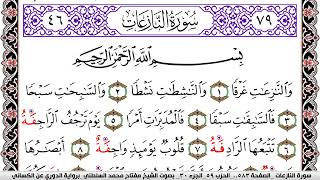 ٧٩ سُورَةُ النَّازِعَات ٤٦
بِسْمِ اللَّهِ الرَّحْمَٰنِ الرَّحِيمِ
وَالنَّٰزِعَٰتِ غَرْقًا ١ وَالنَّٰشِطَٰتِ نَشْطًا ٢ وَالسَّٰبِحَٰتِ سَبْحًا
٣ فَالسَّٰبِقَٰتِ سَبْقًا ٤ فَالْمُدَبِّرَٰتِ أَمْرًا ٥ يَوْمَ تَرْجُفُ الرَّاجِفَةُ
٦ تَتْبَعُهَا الرَّادِفَةُ ٧ قُلُوبٌ يَوْمَئِذٍ وَاجِفَةٌ ٨ أَبْصَٰرُهَا
سورة النازعات الصفحة ٥٨٣، الحزب ٥٩ الجزء ٣٠ بصوت الشيخ مفتاح محمد السلطني برواية الدوري عن الكسائي